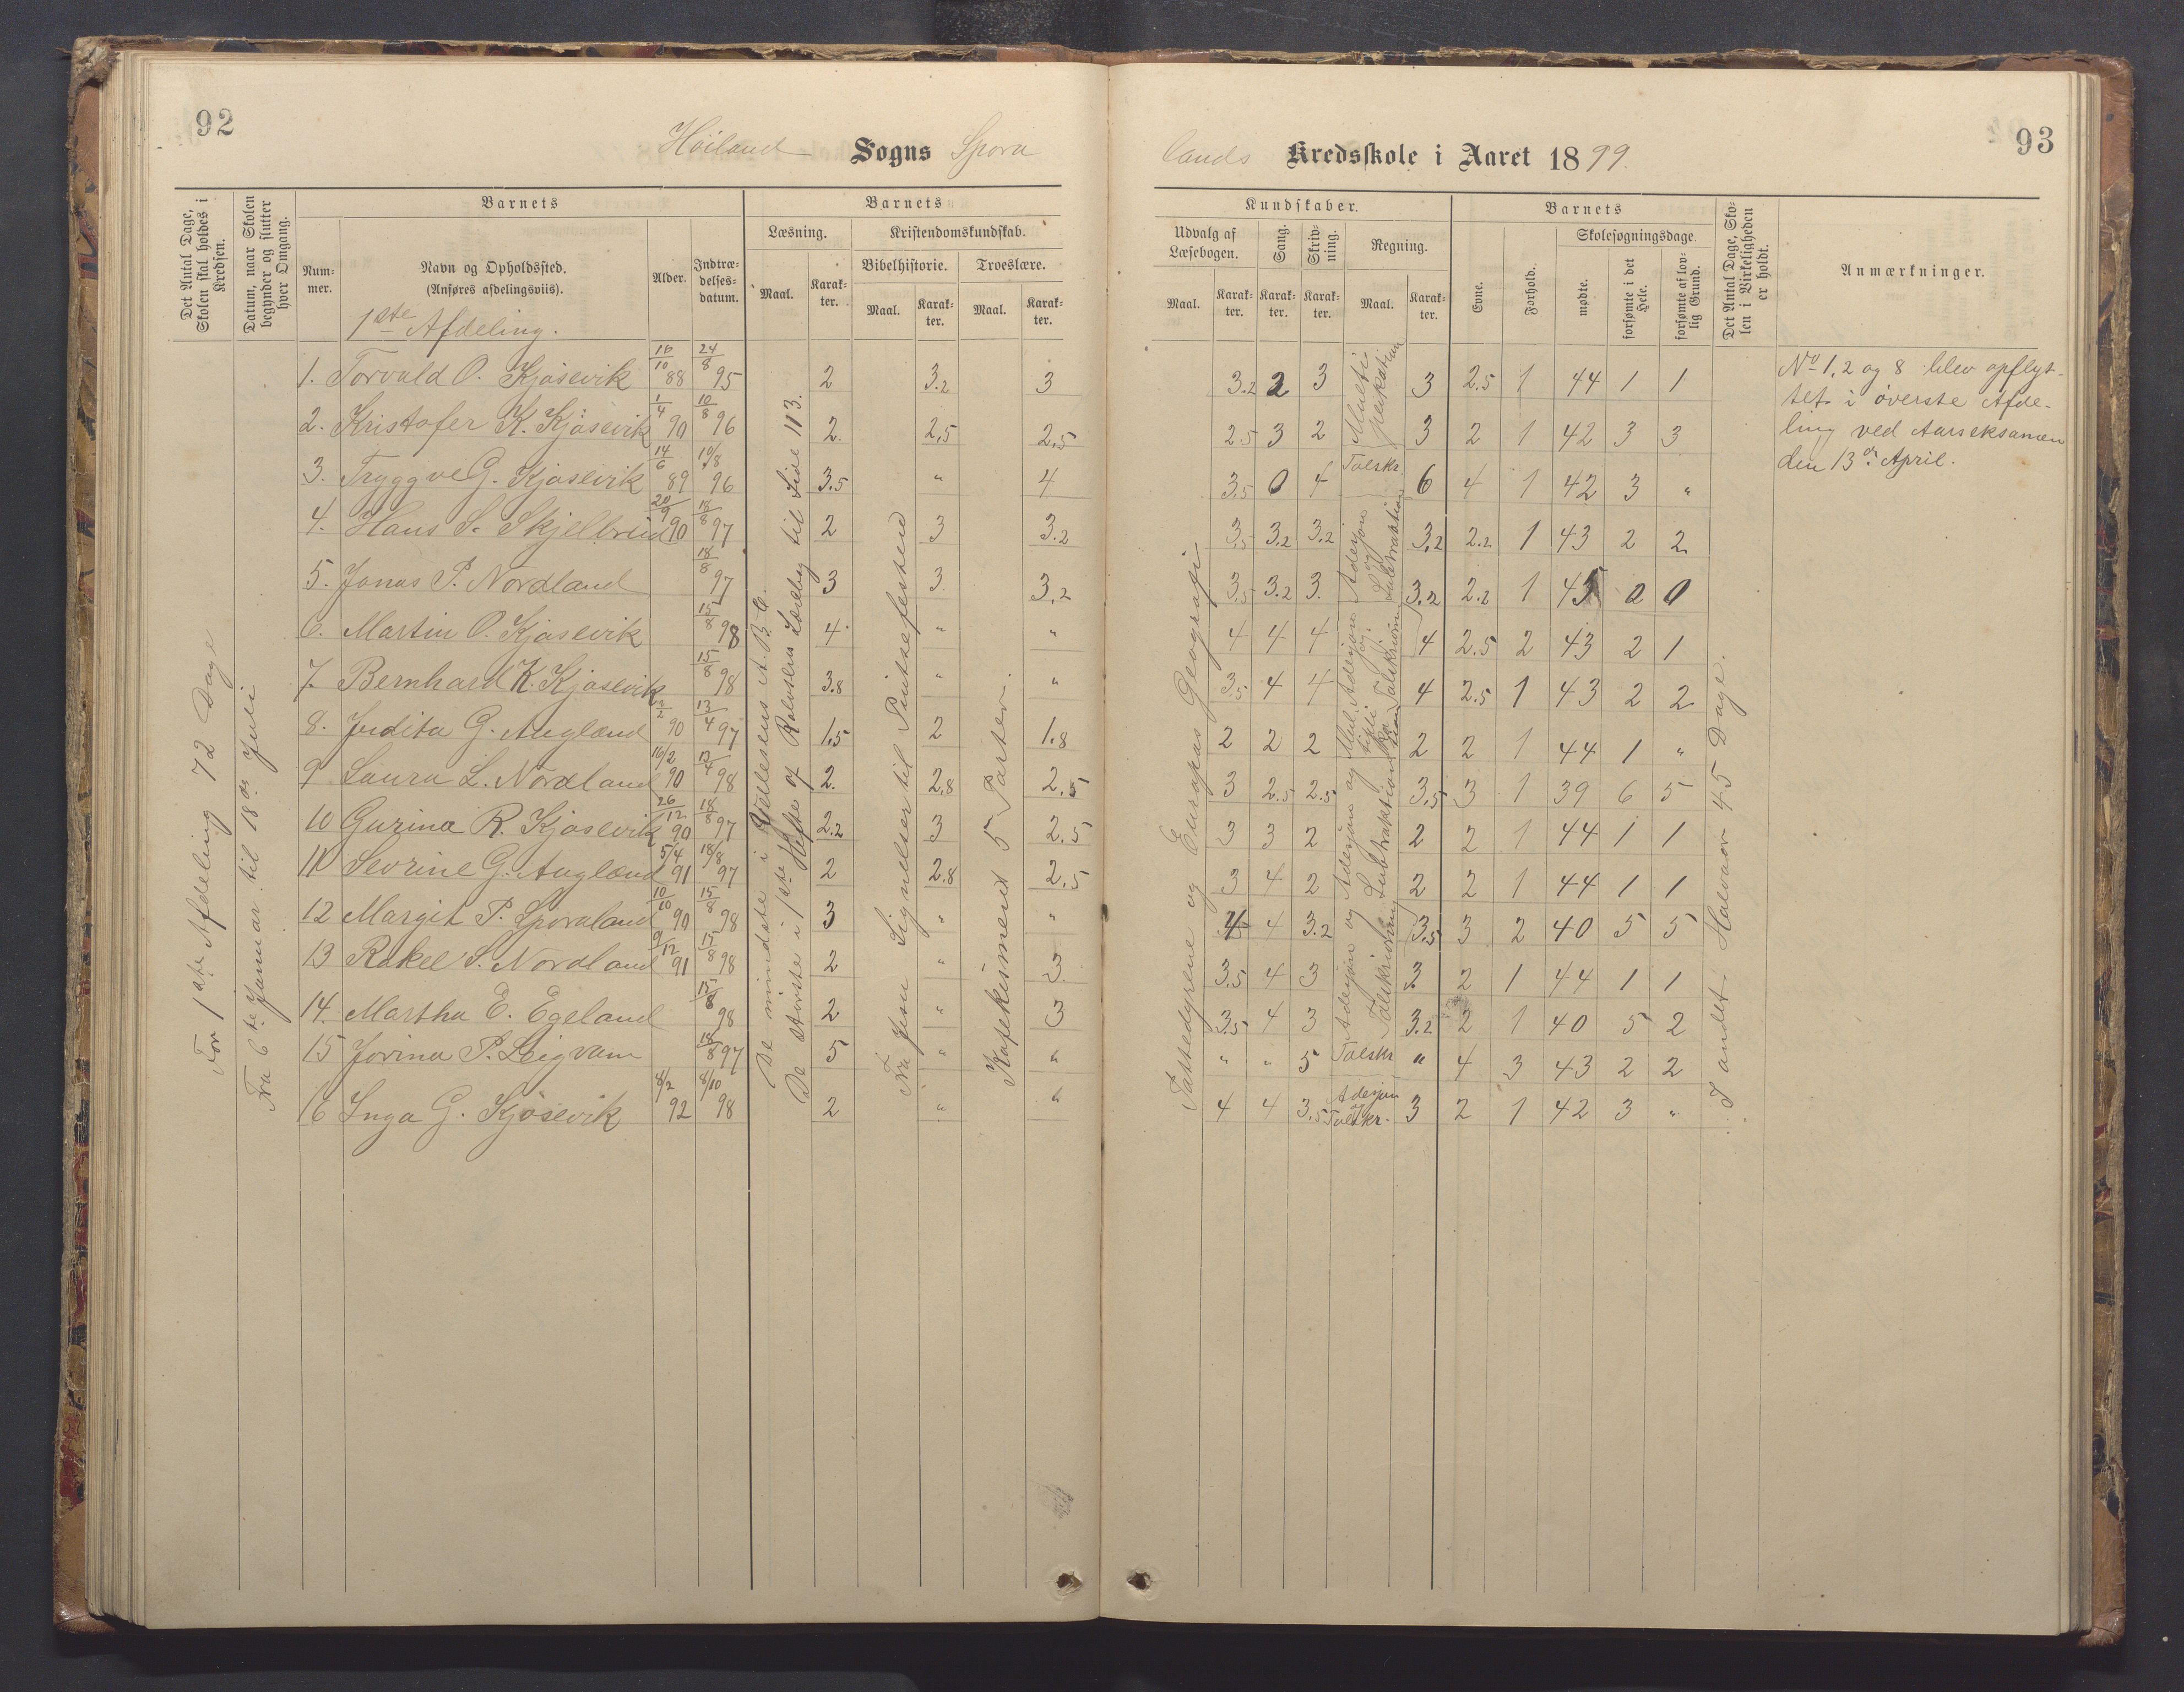 92
Höiland Sogns Spora
Det Antal Dage, Skolen skal holdes i Kredsen.
Datum, naar Skolen begynder og slutter hver Omgang.
Barnets
Nummer.
Navn og Opholdssted.
(Anføres afdelingsviis).
1ste Afdeling.
Alder.
Indtrædelsesdatum.
Barnets
Læsning.
Maal.
Karakter.
Kristendomskundskab.
Bibelhistorie.
Maal.
Karakter.
Troeslære.
Maal.
Karakter.
For 1ste Afdeling 72 Dage
Fra 6te Januar til 18de Juli
De mindste i Veldesens A.B.C.
De største i 1ste Hefte af Rolvsens Læseby til Side 113.
Fra Jesu Signelser til Pintsefesten
Katekismens 5 Parter.
1. Torvald O. Kjosevik 16/10 88 24/8 95 2 3.2 3
2. Kristofer K. Kjosevik 1/4 90 10/8 96 2. 2,5 2,5
3. Tryggve G. Kjosevik 14/6 89 10/8 96 3.5 " 4
4. Hans S. Skjelbreid 20/9 90 18/8 97 2 3 3.2
5. Jonas P. Nordland 18/8 97 3 3 3,2
6. Martin O. Kjosevik 15/8 98 4 " "
7. Bernhard K. Kjosevik 15/8 98 3.8 " "
8. Judita G. Augland 2 90 13/4 97 1,5 2 1.8
9 Laura L. Nordland 16/2 90 13/4 98 2. 2,8 2,5
10 Gurina R. Kjosevik 26/12 90 18/8 97 2.2 3 2.5
11 Sevrine G. Augland 5/4 91 18/8 97 2 2.8 2,5
12 Margit P. Sporaland 10/10 90 15/8 98 3 " "
13 Rakel S. Nordland 9/12 91 17/8 98 2 " 3
14. Martha E. Egeland 15/8 98 2 " 3
15 Jorina P. Leigvam 18/8 97 5 " "
16 Inga G. Kjosevik 8/2 92 8/10 98 2 " "
93
lands Kredsskole i Aaret 1899.
Kundskaber.
Udvalg af Læsebogen.
Maal.
Karakter.
Sang.
Karakter.
Skrivning.
Karakter.
Regning.
Maal.
Karakter.
Barnets
Evne.
Forhold.
Skolesøgningsdage.
mødte.
forsømte i det Hele.
forsømte af lovlig Grund.
Det Antal Dage, Skolen i Virkeligheden er holdt.
Anmærkninger.
Pattedyrene og Europas Geografi
I andet Halvaar 45 Dage.
3.2 2 3 Multiplikation 3 2.5 1 44 1 1
2.5 3 2 3 2 1 42 3 3
3,5 0 4 Talskr. 6 4 1 42 3 "
3,5 3,2 3.2 Adesjon og Subtraktion 3,2 2.2 1 43 2 2
3,5 3.2 3. 3.2 2.2 1 45 0 0
4 4 4 Adesjon og Talskrivning 4 2.5 2 43 2 1
3,5 4 4 4 2.5 1 43 2 2
2 2 2 2 2 1 44 1 "
3 2.5 2.5 Adesjon og Subtraktion 3,5 3 1 39 6 5
3 3 2 2 2 1 44 1 1
3 4 2 2 2 1 44 1 1
4 4 3.2 Adesjon og Talskrivning 3,5 3 2 40 5 5
3.5 4 3 3 2 1 44 1 1
3,5 4 3 3.2 2 1 40 5 2
" " 5 Talskr " 4 3 43 2 2
4 4 3,5 Adesjon og Talskr. 3 2 1 42 3 "
No 1, 2 og 8 blev opflyt-
tet i øverste Afde-
ling ved Aarseksamen
den 13de April.